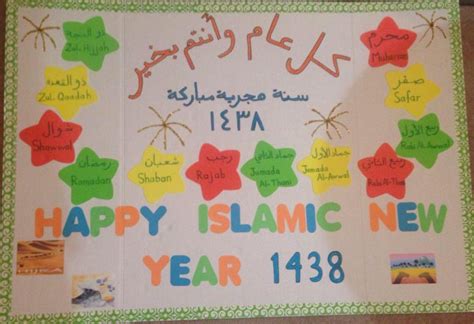 كل عام وأنتم بخير
سنة هجرية مباركة
١٤٣٨
محرم
Muharram
صفر
Safar
ربيع الأول
Rabi Al-Awwal
ربيع الثاني
Rabi Al-Thani
جماد الأول
Jamada Al-Awwal
جماد الثاني
Jumada Al-Thani
رجب
Rajab
شعبان
Shaban
رمضان
Ramadan
شوال
Shawwal
ذو القعدة
Zul-Qaadah
ذو الحجة
Zul-Hijjah
HAPPY ISLAMIC NEW
YEAR 1438